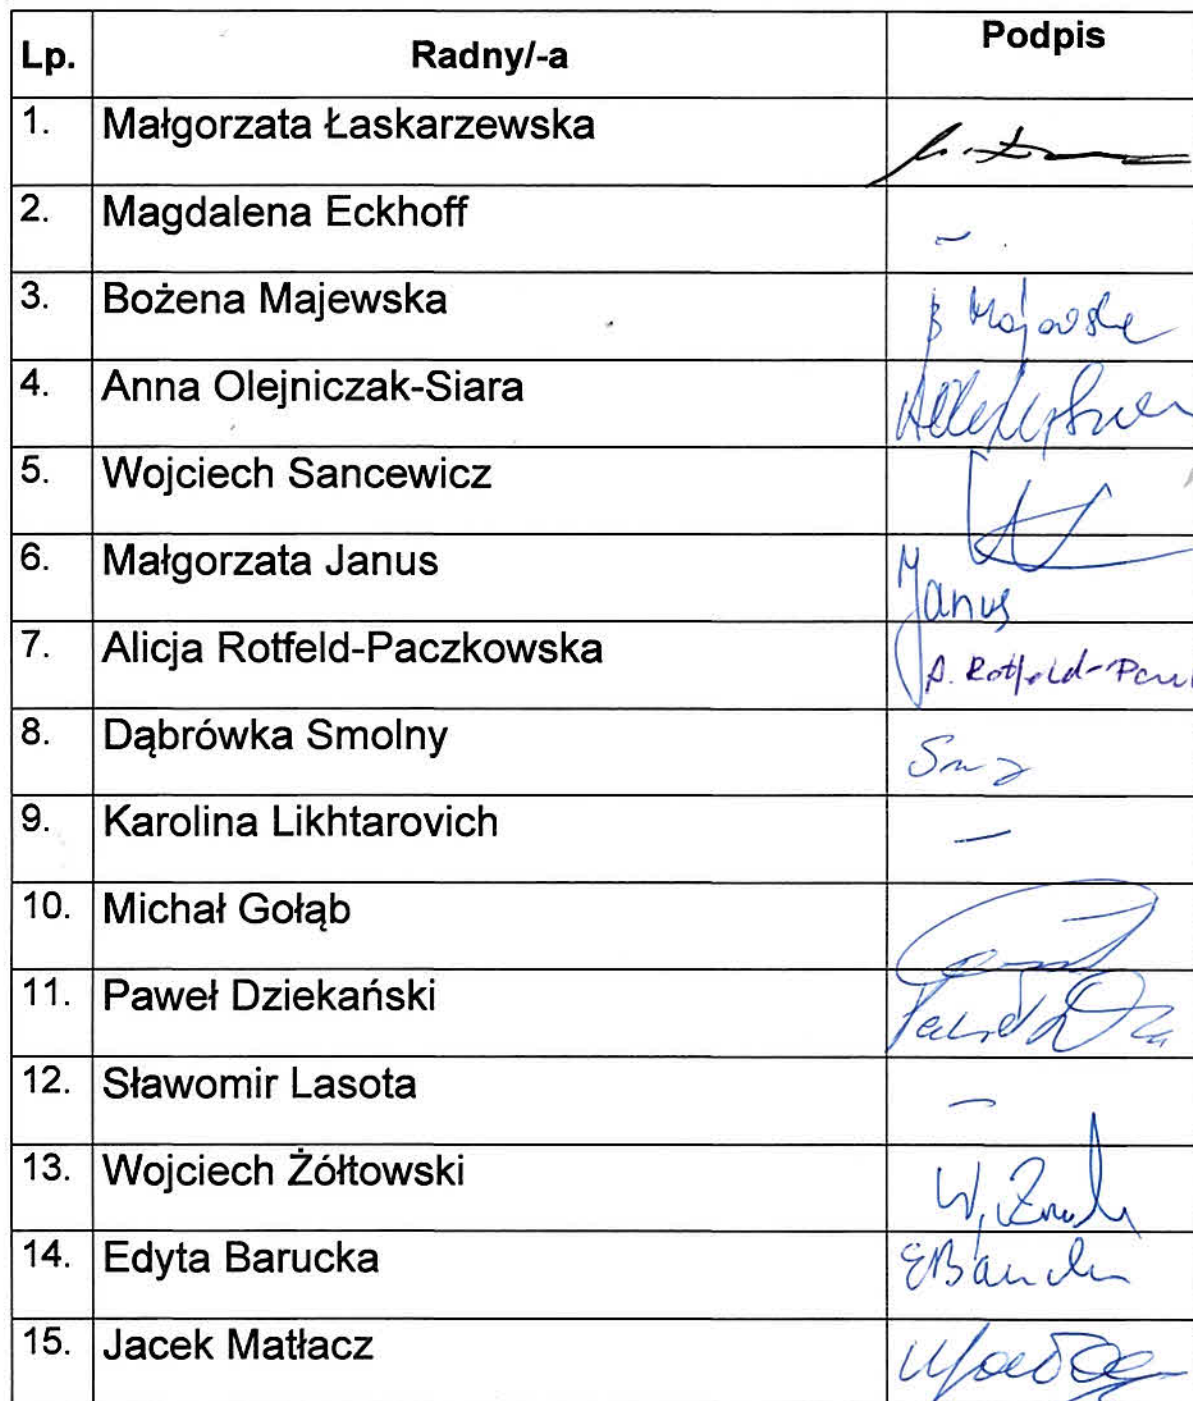 Lp. Radny/-a Podpis
1. Małgorzata Łaskarzewska
2. Magdalena Eckhoff –
3. Bożena Majewska B Majewska
4. Anna Olejniczak-Siara
5. Wojciech Sancewicz
6. Małgorzata Janus Janus
7. Alicja Rotfeld-Paczkowska A. Rotfeld-
8. Dąbrówka Smolny
9. Karolina Likhtarovich –
10. Michał Gołąb
11. Paweł Dziekański
12. Sławomir Lasota –
13. Wojciech Żółtowski
14. Edyta Barucka
15. Jacek Matłacz